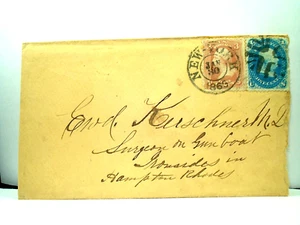 NEW-YORK
JAN
30
1865
Ewd. Kerschner M.D
Surgeon on Gunboat
Ironsides in
Hampton Rhodes